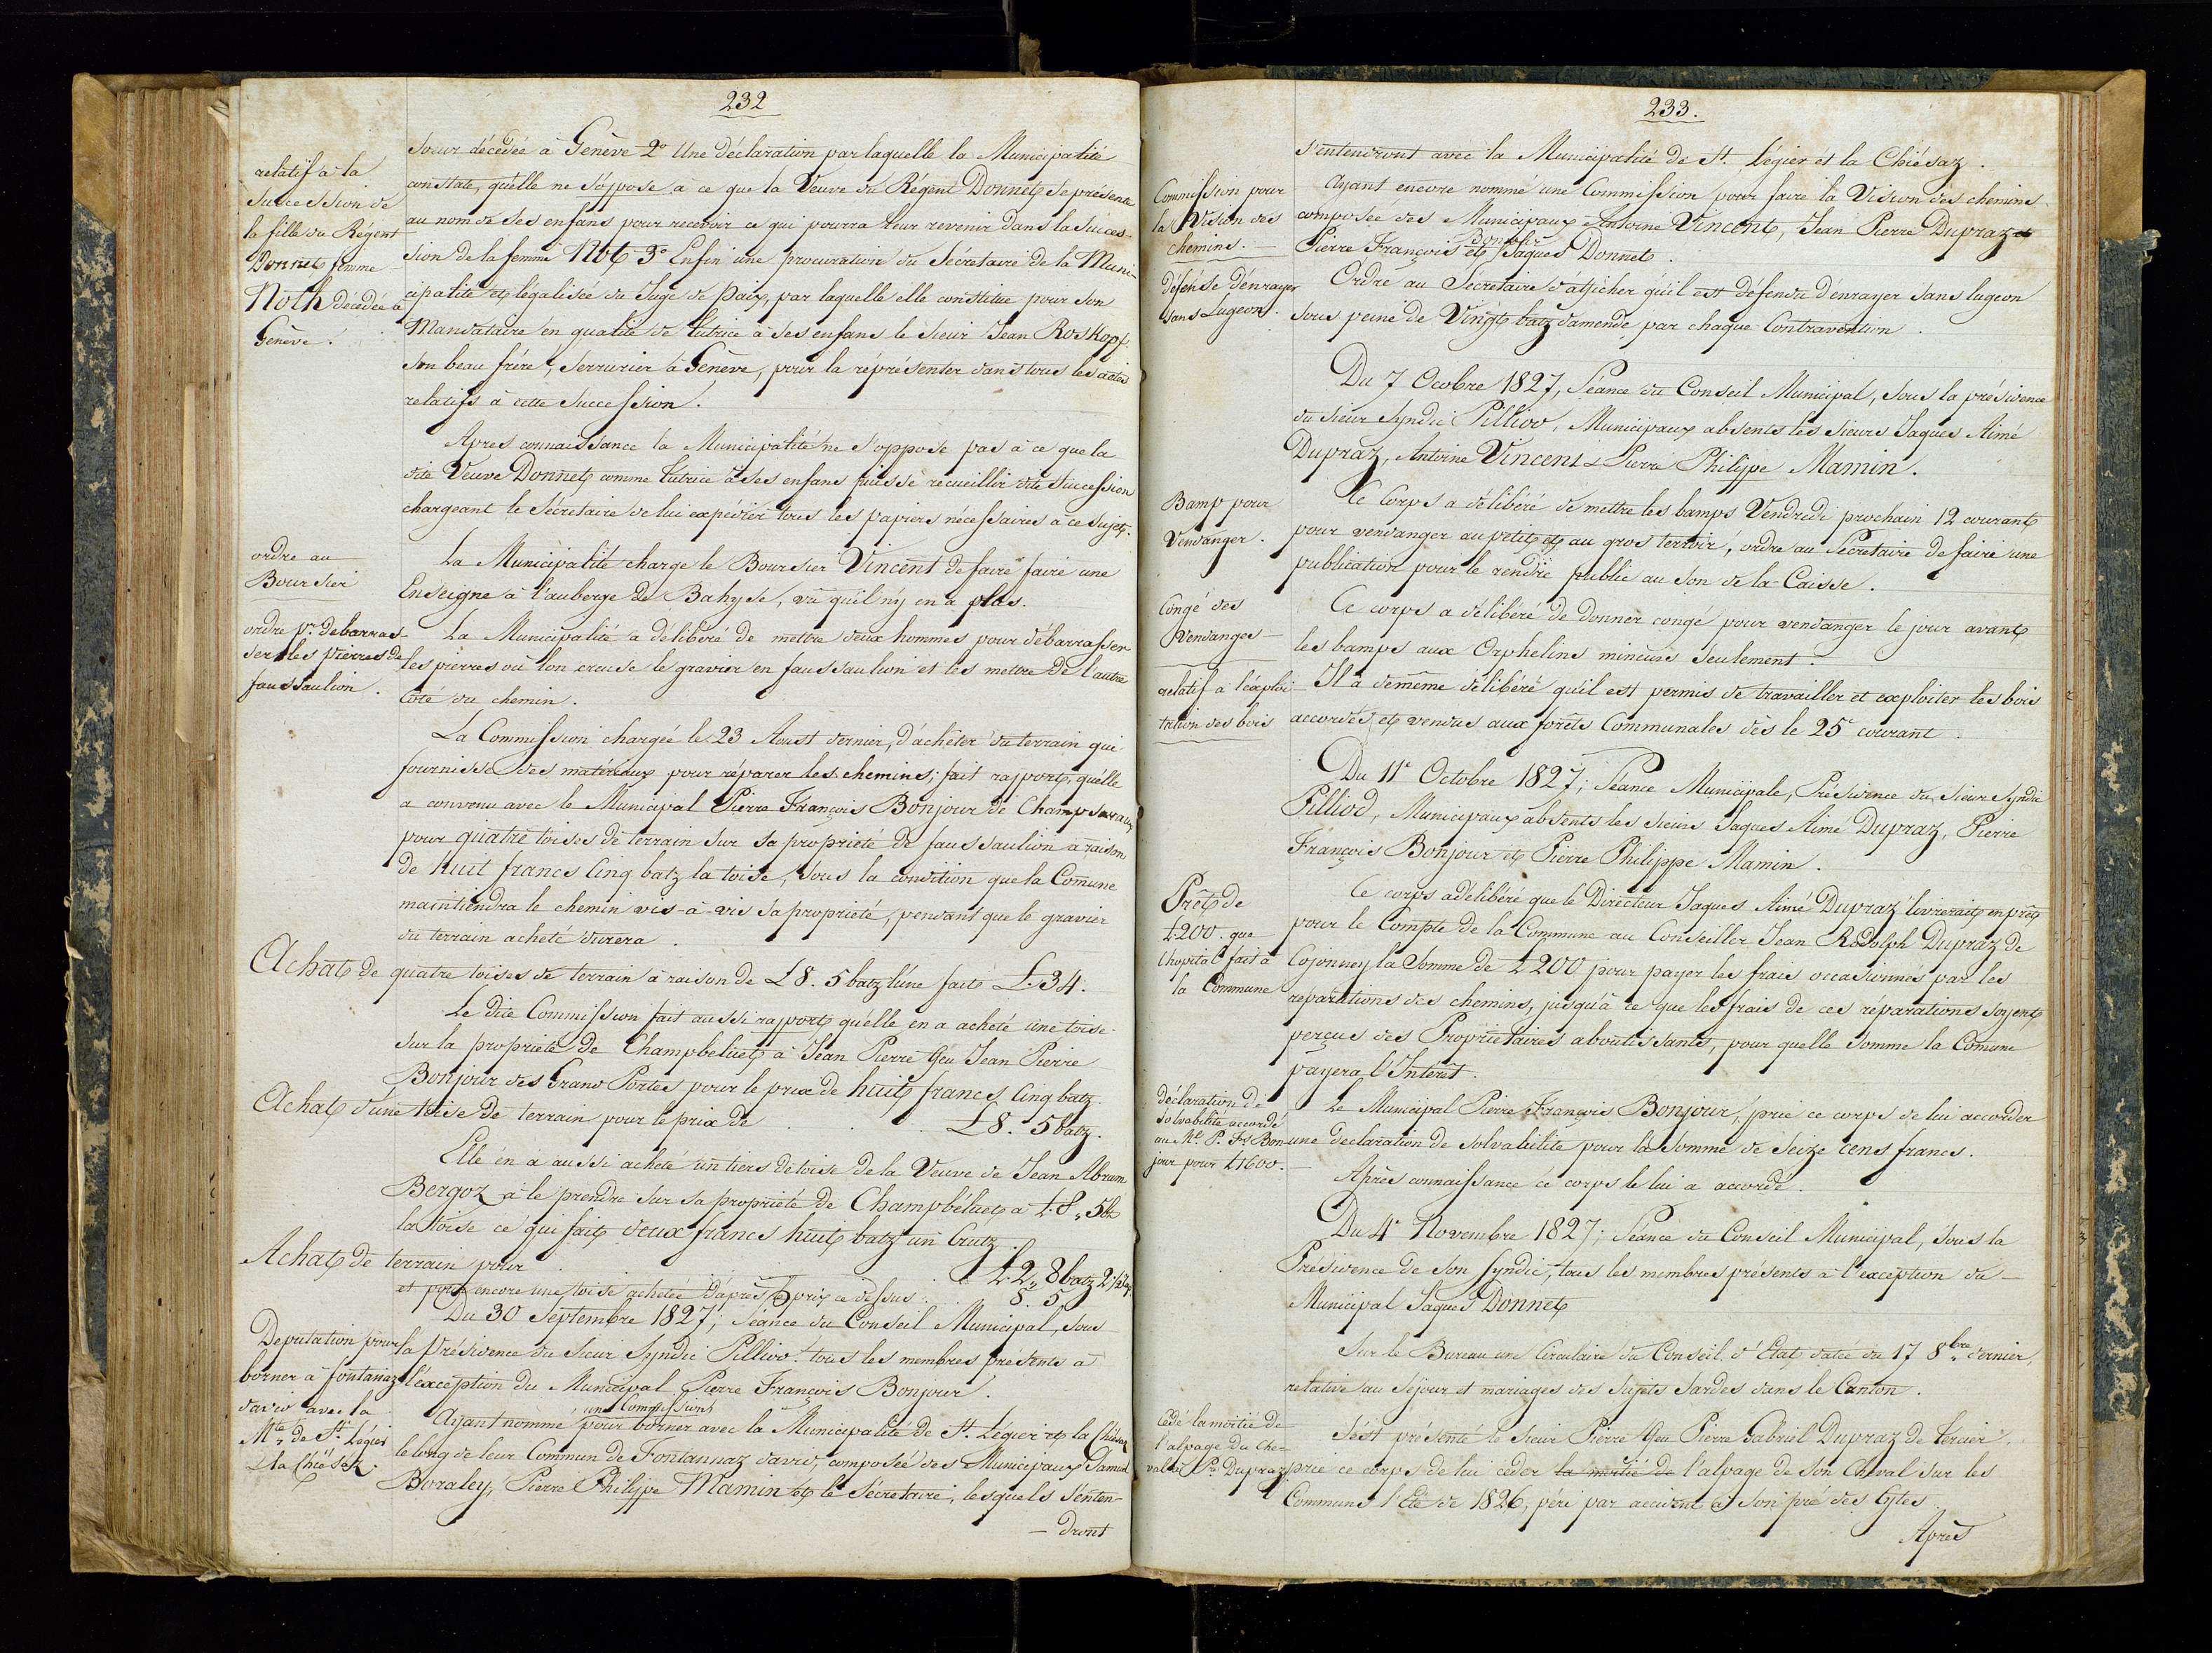 232
relatif à la
Succession de
la fille du Régent
Donnet femme
Noth décédée à
Genève.
Soeur décédée à Genève 2° Une déclaration par laquelle la Municipalité
constate, qu'elle ne s'oppose à ce que la Veuve du Régent Donnet se présente
au nom de ses enfans pour recevoir ce qui pourra leur revenir dans la succes-
sion de la femme Not 3° Enfin une procuration du Sécretaire de la Muni-
cipalité et légalisée du Juge de Paix, par laquelle elle constitue pour son
Mandataire en qualité de tutrice à ses enfans le Sieur Jean Roskopf
son beau frére, serrurier à Genève, pour la réprésenter dans tous les actes
relatifs à cette succession.
Apres connaissance la Municipalité ne s'oppose pas à ce que la
dite Veuve Donnet comme tutrice à ses enfans puisse recueillir dite succession
chargeant le Sécretaire de lui expédier tous les papiers nécessaires à ce sujet.
ordre au
Boursier
La Municipalité charge le Boursier Vincent de faire faire une
Enseigne à l'auberge de Bahyse, vû qu'il n'y en a plus.
ordre pr. debarras-
ser les pierres de
faussaulion.
La Municipalité a délibéré de mettre deux hommes pour débarrasser
les pierres où l'on creuse le gravier en faussaulion et les mettre de l'autre
côté du chemin.
La Commission chargée le 23 Aoust dernier, d'achêter du terrain qui
fournisse des matériaux pour réparer les chemins; fait rapport, qu'elle
a convenu avec le Municipal Pierre François Bonjour de Champsavaux
pour quatre toises de terrain sur sa propriété de faussaulion a raison
de huit francs Cinq batz la toise, sous la condition que la Commune
maintiendra le chemin vis-à-vis sa propriété, pendant que le gravier
du terrain acheté durera.
Achat de quatre toises de terrain à raison de £8. 5 batz l'une fait £.34.
Le dite Commission fait aussi rapport qu'elle en a acheté une toise
sur la propriété de Champbeluet à Jean Pierre feu Jean Pierre
Bonjour des Grand Portes pour le prix de huit francs Cinq batz.
Achat d'une toise de terrain pour le prix de . . . £8. 5 batz.
Elle en a aussi acheté un tiers de toise de la Veuve de Jean Abram
Bergoz à le prendre sur sa propriété de Champbéluet à £.8 „ 5bz
la toise ce qui fait deux francs huit batz un Crutz.
Achat de terrain pour . . . £2 „ 8 batz
et pour encore une toise achetée d'après le prix ce dessus . . 8. 5
Du 30 Septembre 1827; Séance du Conseil Municipal, sous
la Présidence du Sieur Syndic Pilliod: tous les membres présents à
l'exception du Municipal Pierre François Bonjour.
Deputation pour
borner à fontanaz
david avec la
Mté. de St. Légier
& la Chiésaz.
une Commission
Ayant nommé pour borner avec la Municipalité de St. Légier et la Chiésaz
le long de leur Commun de Fontannaz david, composée des Municipaux Samuel
Boraley, Pierre Philippe Mamin et le Sécretaire, lesquels s'enten-
- dront
233.
s'entendront avec la Municipalité de St. Légier et la Chiésaz.
Commission pour
la Vision des
chemins.
Ayant encore nommé une Commission pour faire la Vision des chemins
composée des Municipaux Antoine Vincent, Jean Pierre Dupraz et
Bonjour
Pierre François et Jaques Donnet.
défense d'enrayer
sans Lugeon.
Ordre au Sécretaire d'afficher qu'il est défendu d'enrayer sans lugeon
sous peine de Vingt batz d'amende par chaque Contravention.
Du 7 Ocobre 1827, Séance du Conseil Municipal, sous la présidence
du Sieur Syndic Pilliod, Municipaux absents les Sieurs Jaques Aimé
Dupraz, Antoine Vincent & Pierre Philippe Mamin.
Bamp pour
Vendanger.
Ce Corps a délibéré de mettre les bamps Vendredi prochain 12 courant
pour vendanger au petit et au gros terroir, ordre au Sécretaire de faire une
publication pour le rendre public au son de la Caisse.
Congé des
Vendanges
Ce corps a délibéré de donner congé pour vendanger le jour avant
les bamps aux Orphelins mineurs seulement.
relatif à l'exploi-
tation des bois
Il a demême délibéré qu'il est permis de travailler et exploiter les bois
accordés et vendus aux forêts Communales dès le 25e courant.
Du 11e Octobre 1827; Séance Municipale, Présidence du Sieur Syndic
Pilliod, Municipaux absents les sieurs Jaques Aimé Dupraz, Pierre
François Bonjour et Pierre Philippe Mamin.
Prêt de
£200. que
l'hopital fait à
la Commune
Ce corps a délibéré que le Directeur Jaques Aimé Dupraz livrerait en prêt
pour le Compte de la Commune au Conseiller Jean Rodolph Dupraz de
Cojonney la Somme de £200 pour payer les frais occasionnés par les
réparations des chemins, jusqu'à ce que les frais de ces réparations soyent
perçus des Propriétaires aboutissants, pour quelle somme la Comune
payera l'Intérêt.
déclaration de
solvabilité accordé
au Ml. P. Fs Bon-
jour pour £1600.
Le Municipal Pierre François Bonjour, prie ce corps de lui accorder
une declaration de solvabilité pour la somme de Seize cens francs.
Après connaissance ce corps le lui a accordé.
Du 4e Novembre 1827; Séance du Conseil Municipal, sous la
Présidence de son Syndic, tous les membres présents à l'exception du
Municipal Jaques Donnet
Sur le Bureau une Circulaire du Conseil d'Etat datée du 17 8bre dernier,
relative au Séjour et mariages des Sujets Sardes dans le Canton.
Cédé la moitié de
l'alpage du che-
val à Pre Dupraz
S'est présenté le Sieur Pierre feu Pierre Gabriel Dupraz de Tercier.
prie ce corps de lui céder la moitié de l'alpage de son Cheval sur les
Communs l'Eté de 1826, péri par accident à son pré des Cytes.
Après